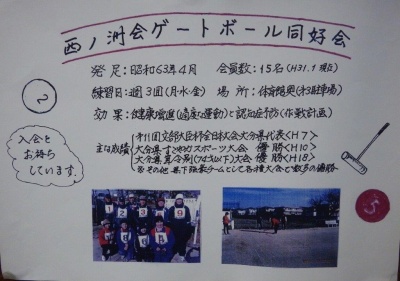 西ノ洲会ゲートボール同好会
発足:昭和63年4月 会員数:15名(H31.1現在)
練習日:週3回(月・水・金) 場所:体育館奥(第3駐車場)
効果:健康増進(適度な運動)と認知症予防(作戦計画)
主な成績
第11回文部大臣杯全日本大会大分県代表<H7>
大分県すこやかスポーツ大会 優勝<H10>
大分県寿令別(74才以下)大会 優勝<H18>
※その他 県下強豪チームとして各種大会で数多の優勝
2
入会を
お待ち
しています。
5
1 2 3 9